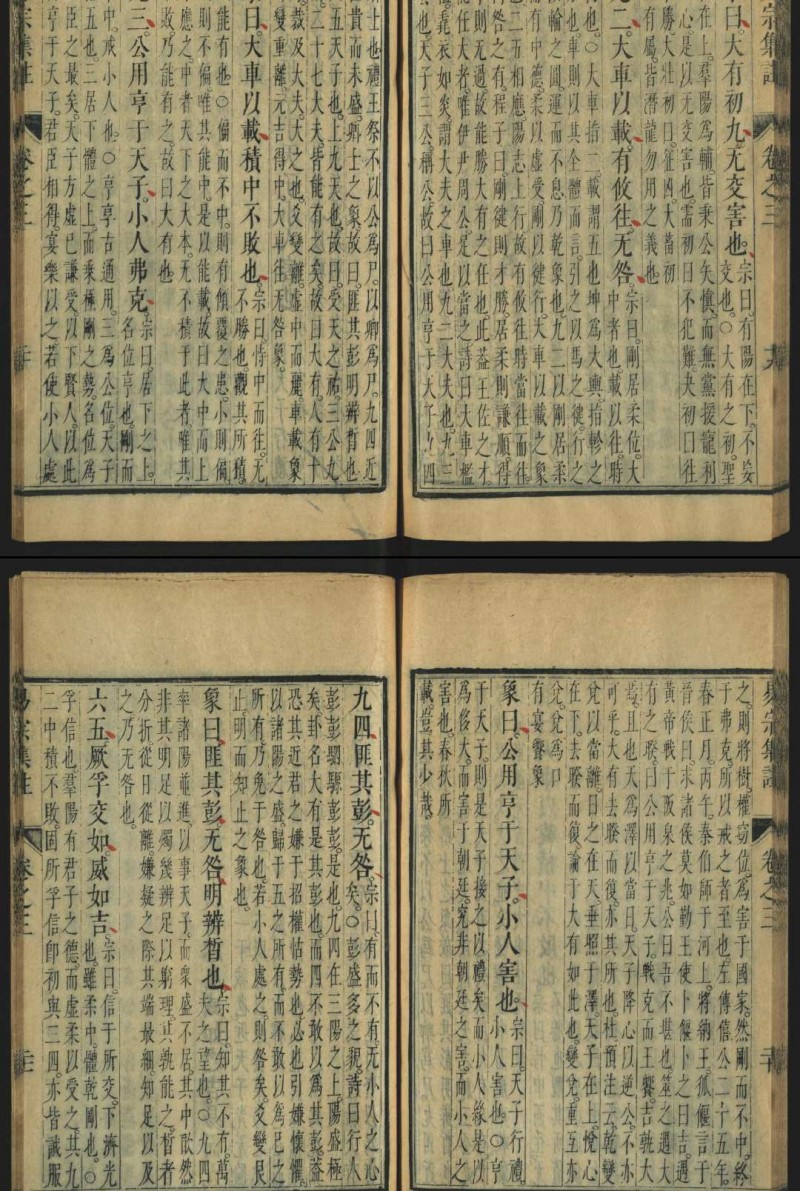 易宗集註
卷之三
九
曰大有初九无交害也
宗曰有陽在下不妄
交也○大有之初聖
在上羣陽為輔皆秉公矢慎而無黨援寵利
心是以无交害也需初曰不犯難夬初曰往
勝大壯初曰征凶大畜初
有厲皆潛龍勿用之義也
九二大車以載有攸往无咎
宗曰剛居柔位大
中者也載以往時
也○大車指二載謂五也坤為大輿指軫之
也車則以其全體而言引之以馬之健行之
輪之圓運而不息乃乾象也九二以剛居柔
有中德柔以虛受剛以健行大車以載之象
二五相應陽志上行故有攸往時當往而往
咎之有程子曰剛健則才勝居柔則謙順得
則无過故能勝大有之任也此蓋王佐之才
任大者唯伊尹周公足以當之詩曰大車檻
毳衣如矣謂大夫之車也九二大夫也九三
也天子三公稱公故曰公用亨于天子九四
士也禮王祭不以公為尸以卿為尸九四近
貴而未盛卿士之象故曰匪其彭明辨晳也
五天子也上九天也故曰受天之祜三公九
二十七大夫皆能有之矣故曰大有人有十
載及大夫大之也爻變離虛中而麗車載象
變重離元吉得中大車往无咎象
曰大車以載積中不敗也
宗曰恃中而往无
不勝也觀其所積
能有也○偏而不中則有傾覆之患小則偏
則不偏唯其能中是以能載故曰大中而上
應之中者天下之大本无不積于此者唯其
敗乃能有之故曰大有也
三公用亨于天子小人弗克
宗曰居下之上
名位亨也剛而
中戒小人也○亨享古通用三為公位天子
五也二居下體之上而乘極剛之勢名位為
臣之最矣天子方虛已謙受以下賢人以此
亨于天子君臣相得宴樂以之若使小人處
易宗集註
卷之三
之則將樹權竊位為害于國家然剛而不中終
于弗克所以戒之者至也左傳僖公二十五年
春正月丙午秦伯師于河上將納王狐偃言于
晉侯曰求諸侯莫如勤王使卜偃卜之曰吉遇
黃帝戰于阪泉之兆公曰吾不堪也筮之遇大
有之睽曰公用亨于天子戰克而王饗吉孰大
焉且也天為澤以當日天子降心以逆公不亦
可乎大有去睽而復亦其所也杜預注云乾變
兌以當離日之在天垂照于澤天子在上悅心
在下去睽而復論于大有如此也變兌重互亦
兌兌為口
有宴饗象
象曰公用亨于天子小人害也
宗曰天子行禮
小人害也○亨
于天子則是天子接之以禮矣而小人緣是以
為侈大而害于朝廷究非朝廷之害而小人之
害也春秋所
載豈其少哉
九四匪其彭无咎
宗曰有而不有无小人之心
矣○彭盛多之貌詩曰行人
彭彭駟騵彭彭是也九四在三陽之上陽盛極
矣卦名大有是其彭也而四不敢以為其彭蓋
恐其近君之嫌于招權怙勢也必也引嫌懷懼
以諸陽之盛歸于五之所有而不敢以為已之
所有乃免于咎也若小人處之則咎矣爻變艮
止明而知止之象也
象曰匪其彭无咎明辨晳也
宗曰知其不有萬
夫之望也○九四
率諸陽並進以事天子而衆盛不居其中歉然
非其明足以燭幾辨足以窮理其孰能之晳者
分折從日從離嫌疑之際其端最細知足以及
之乃无咎也
六五厥孚交如威如吉
宗曰信于所交下濟光
也雖柔中體乾剛也○
孚信也羣陽有君子之德而虛柔以受之其九
二中積不敗固所孚信卽初與三四亦皆誠服